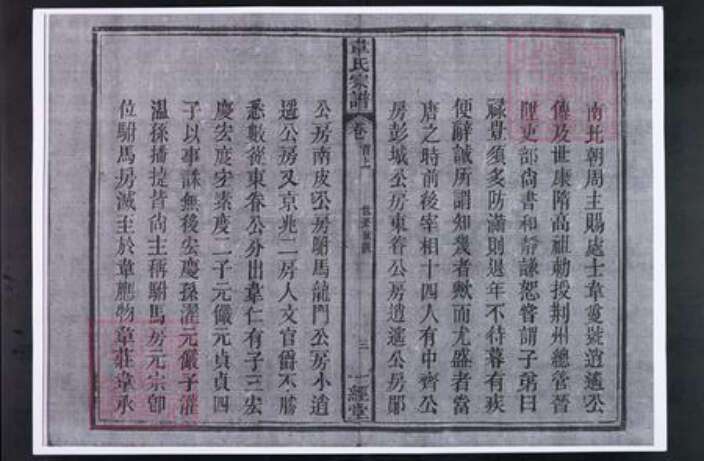 南北朝周主賜處士韋敻號逍遙公
傳及世康隋高祖勅授荆州總管晉
陞吏部尚書和靜謙恕嘗謂子弟曰
祿豈須多防滿則退年不待暮有疾
便辭誠所謂知幾者歟而尤盛者當
唐之時前後宰相十四人有中齊公
房彭城公房東眷公房逍遙公房鄖
韋氏家譜
卷首上
三
一經堂
公房南皮公房駙馬龍門公房小逍
遙公房又京兆二房人文官爵不勝
悉數從東眷公分出韋仁有子三宏
慶宏度宏素度二子元儼元貞貞四
子以事誅無後宏慶孫濯元儼子濯
溫孫播捷皆尚主稱駙馬房元宗卽
位駙馬房滅至於韋應物韋莊韋承